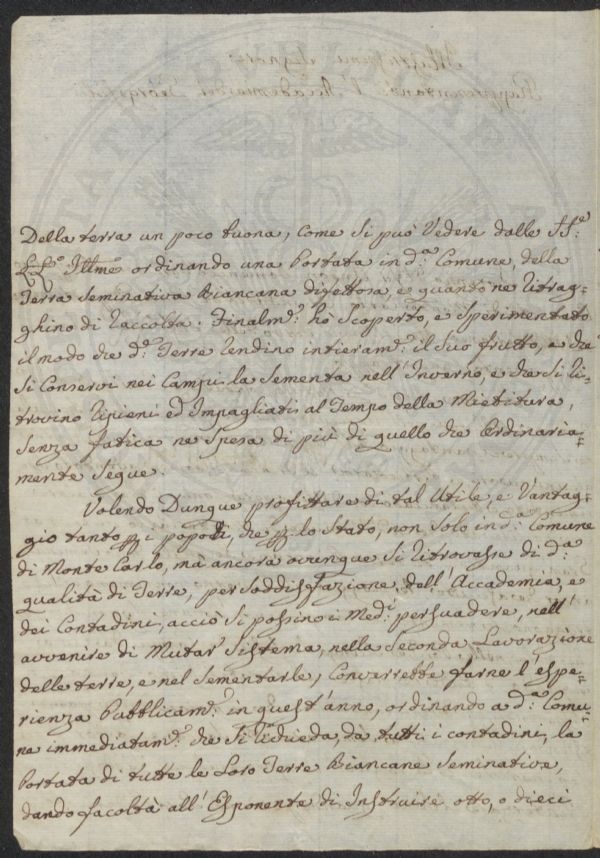 Della terra un poco buona, come si può Vedere dalle SS:e
LL:e Ill:me ordinando una Portata in d:a Comune, della
Terra Seminativa Biancana difettosa, e quanto nè Ritrag=
ghino di Raccolta. Finalm:e hò Scoperto, e Sperimentato
il modo che d:e Terre Rendino intieram:e il Suo frutto, e che
Si Conservi nei Campi la Sementa nell'Inverno, e che Si Ri=
trovino Ripieni ed Impagliati al Tempo della Mietitura,
Senza fatica ne Spesa di più di quello che Ordinaria=
mente Segue.
Volendo Dunque profittare di tal Utile, e Vantag=
gio tanto p i popoli, che p lo Stato, non Solo in d:a Comune
di Monte Carlo, mà ancora ovunque Si Ritrovasse di d:a
qualità di Terre, per Soddisfazione, dell'Accademia, e
dei Contadini, acciò Si possino i Med:i persuadere, nell'
avvenire di Mutar Sistema, nella Seconda Lavorazione
delle terre, e nel Sementarle, Converrette farne l'espe=
rienza Pubblicam:e in quest'anno, ordinando a d:a Comu=
na immediatam:e che Si Richieda, da tutti i contadini, la
Portata di tutte le Loro Terre Biancane Seminative,
dando facoltà all'Esponente di Instruire otto, o dieci